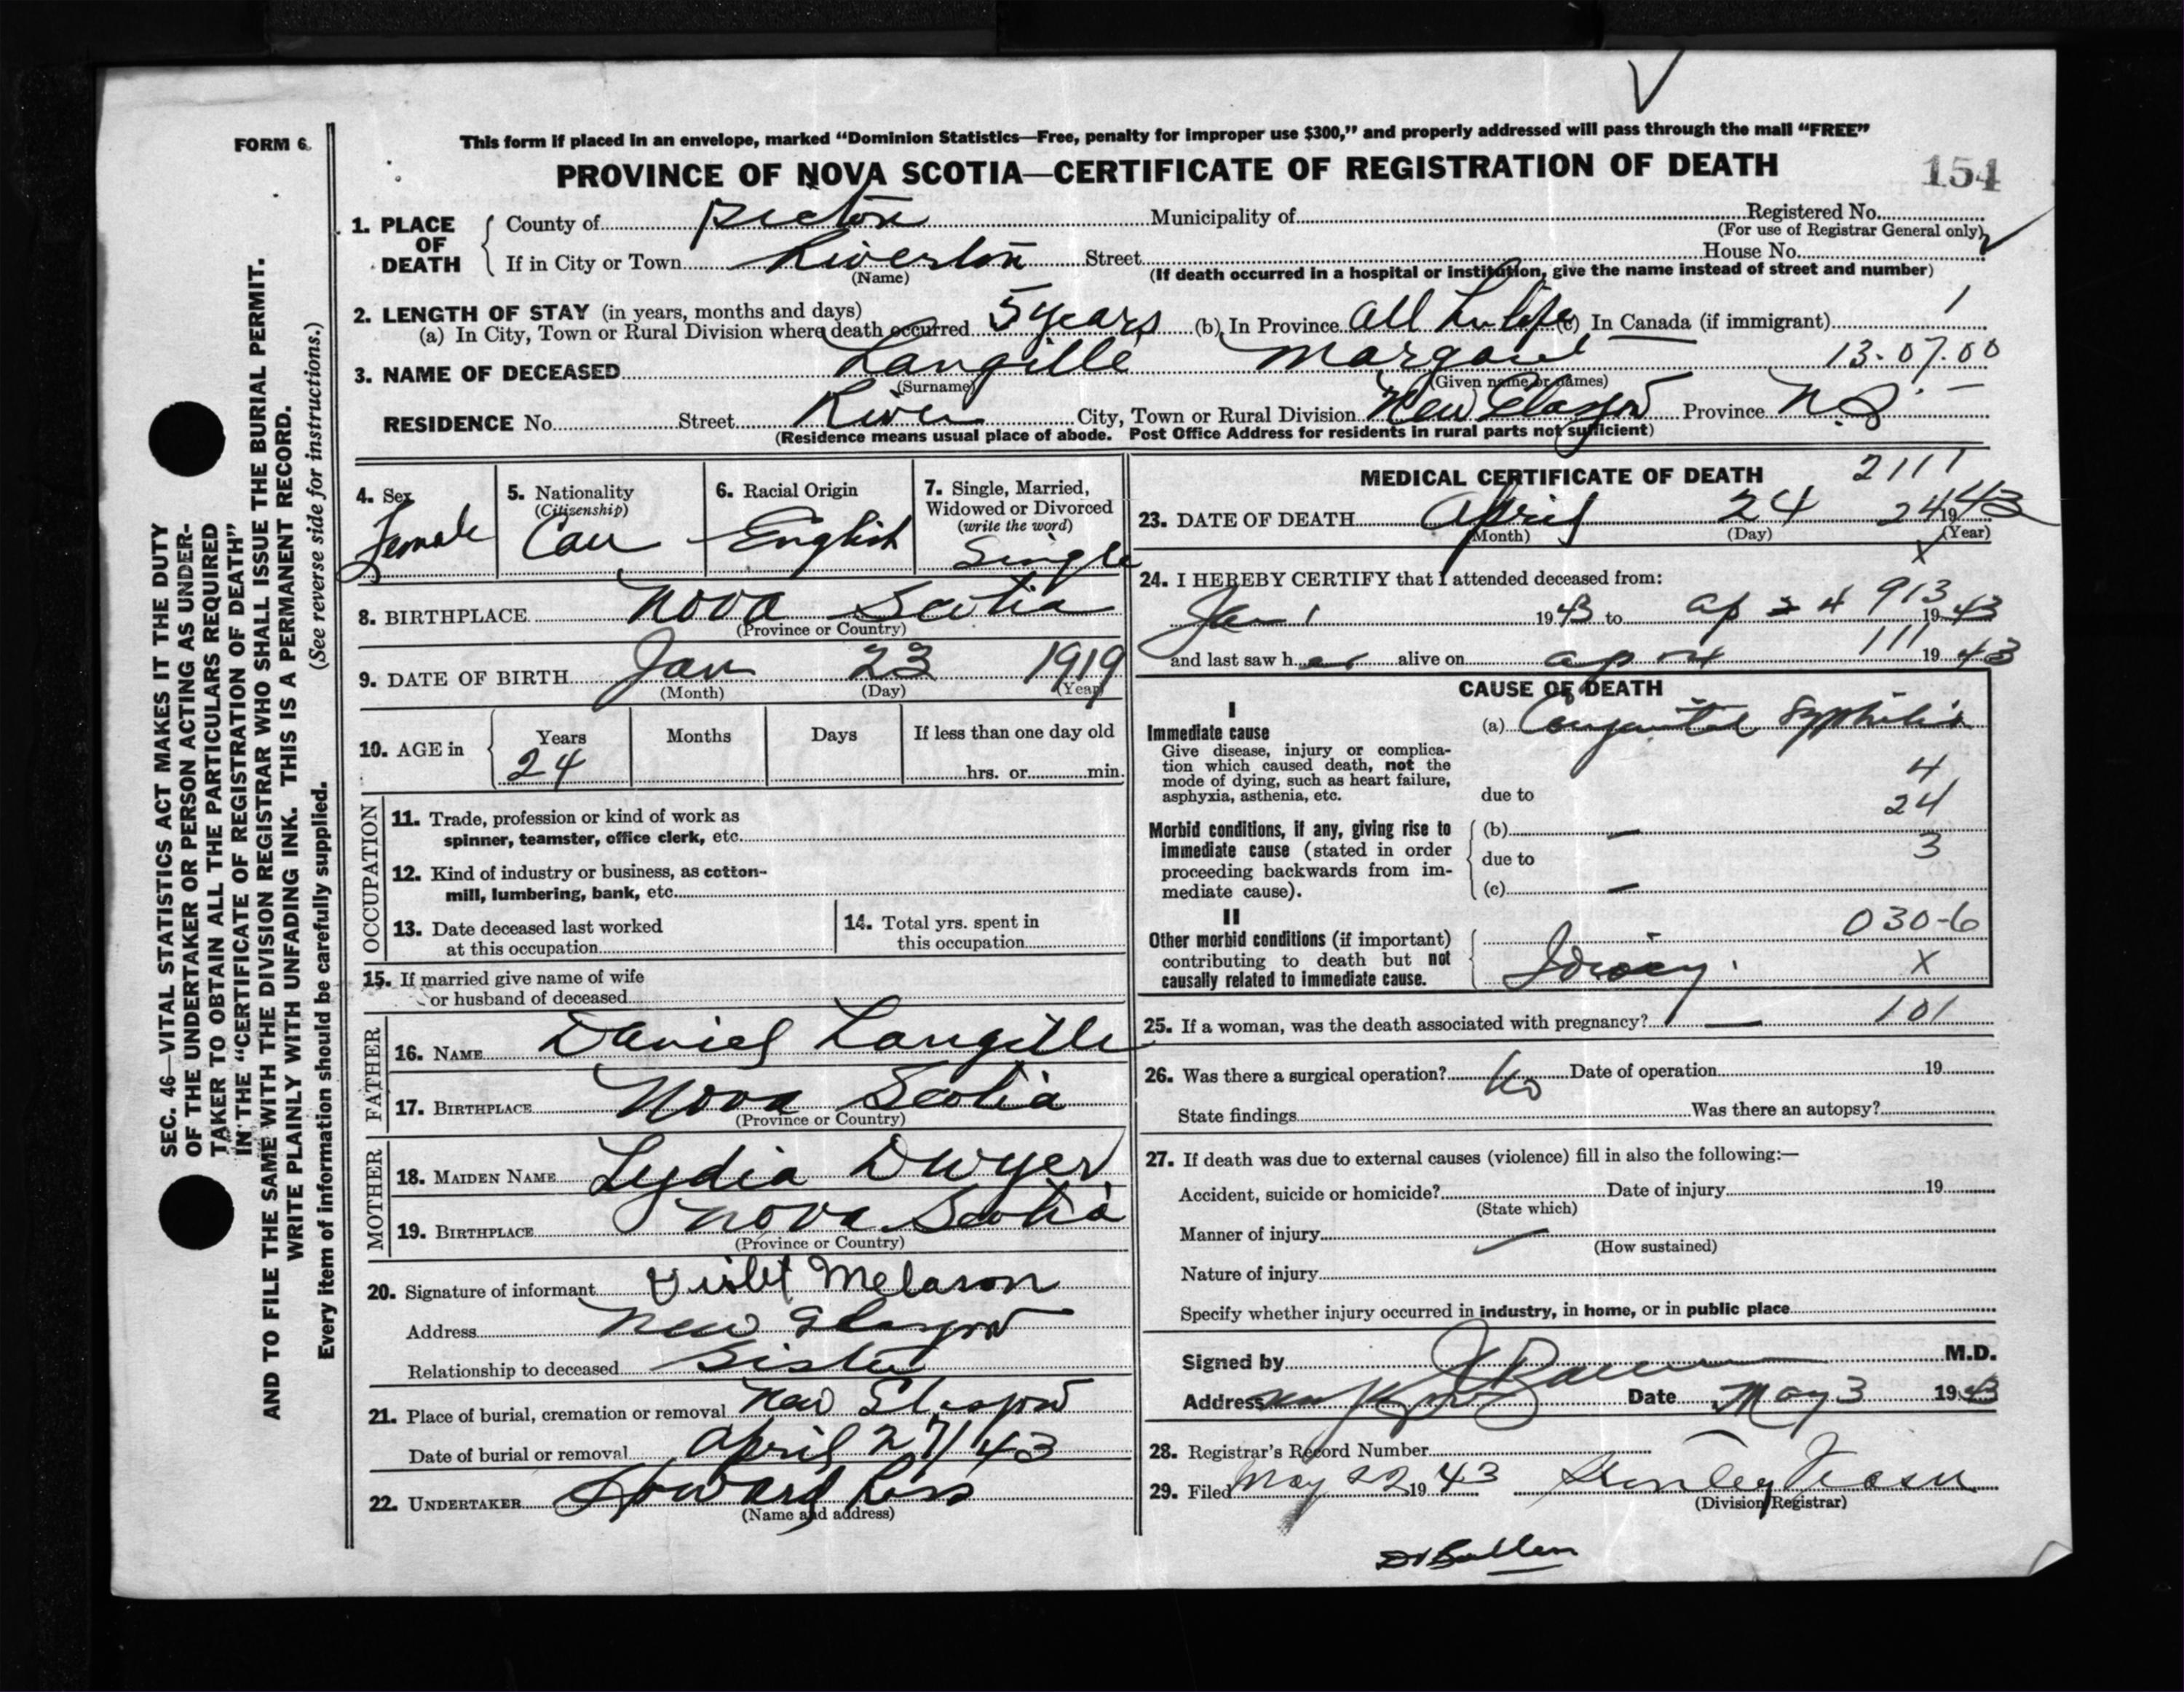 FORM 6.
This form if placed in an envelope, marked "Dominion Statistics—Free, penalty for improper use $300," and properly addressed will pass through the mail "FREE"
PROVINCE OF NOVA SCOTIA—CERTIFICATE OF REGISTRATION OF DEATH
154
SEC. 46—VITAL STATISTICS ACT MAKES IT THE DUTY
OF THE UNDERTAKER OR PERSON ACTING AS UNDER-
TAKER TO OBTAIN ALL THE PARTICULARS REQUIRED
IN THE "CERTIFICATE OF REGISTRATION OF DEATH"
AND TO FILE THE SAME WITH THE DIVISION REGISTRAR WHO SHALL ISSUE THE BURIAL PERMIT.
WRITE PLAINLY WITH UNFADING INK. THIS IS A PERMANENT RECORD.
Every item of information should be carefully supplied. (See reverse side for instructions.)
1. PLACE OF DEATH
County of Pictou Municipality of Registered No.
(For use of Registrar General only)
If in City or Town Riverton Street House No.
(Name) (If death occurred in a hospital or institution, give the name instead of street and number)
2. LENGTH OF STAY (in years, months and days)
(a) In City, Town or Rural Division where death occurred 5 years (b) In Province All her life (c) In Canada (if immigrant) 1
3. NAME OF DECEASED Langille Margaret 13-07-00
(Surname) (Given name or names)
RESIDENCE No. Street River City, Town or Rural Division New Glasgow Province N.S.
(Residence means usual place of abode. Post Office Address for residents in rural parts not sufficient)
4. Sex
Female
5. Nationality
(Citizenship)
Can
6. Racial Origin
English
7. Single, Married,
Widowed or Divorced
(write the word)
Single
8. BIRTHPLACE Nova Scotia
(Province or Country)
9. DATE OF BIRTH Jan 23 1919
(Month) (Day) (Year)
10. AGE in
Years Months Days If less than one day old
24 hrs. or min.
OCCUPATION
11. Trade, profession or kind of work as
spinner, teamster, office clerk, etc.
12. Kind of industry or business, as cotton-
mill, lumbering, bank, etc.
13. Date deceased last worked
at this occupation
14. Total yrs. spent in
this occupation
15. If married give name of wife
or husband of deceased
FATHER
16. NAME Daniel Langille
17. BIRTHPLACE Nova Scotia
(Province or Country)
MOTHER
18. MAIDEN NAME Lydia Dwyer
19. BIRTHPLACE Nova Scotia
(Province or Country)
20. Signature of informant Violet Melason
Address New Glasgow
Relationship to deceased Sister
21. Place of burial, cremation or removal New Glasgow
Date of burial or removal April 27/43
22. UNDERTAKER Howard Ross
(Name and address)
MEDICAL CERTIFICATE OF DEATH
2111
23. DATE OF DEATH April 24 24 1943
(Month) (Day) (Year)
X
24. I HEREBY CERTIFY that I attended deceased from:
913
Jan 1 1943 to ap 24 1943
111
and last saw her alive on ap 24 1943
CAUSE OF DEATH
I
Immediate cause
Give disease, injury or complica-
tion which caused death, not the
mode of dying, such as heart failure,
asphyxia, asthenia, etc.
(a) Congenital Syphilis
4
due to
24
Morbid conditions, if any, giving rise to
immediate cause (stated in order
proceeding backwards from im-
mediate cause).
(b) —
due to 3
(c) —
II
Other morbid conditions (if important)
contributing to death but not
causally related to immediate cause.
030-6
Idiocy. X
25. If a woman, was the death associated with pregnancy? — 101
26. Was there a surgical operation? No Date of operation 19
State findings Was there an autopsy?
27. If death was due to external causes (violence) fill in also the following:—
Accident, suicide or homicide? Date of injury 19
(State which)
Manner of injury
(How sustained)
Nature of injury
Specify whether injury occurred in industry, in home, or in public place
Signed by M.D.
Address Date May 3 1943
28. Registrar's Record Number
29. Filed May 22 1943 Stanley
(Division Registrar)
Dr Ballem